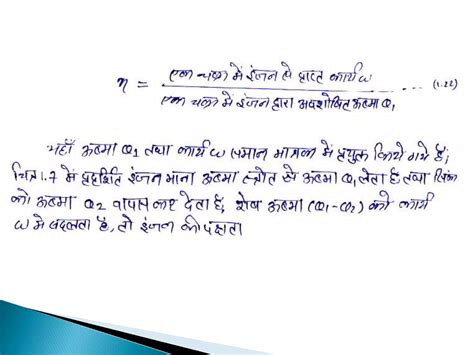 η = एक चक्र में इंजन से प्राप्त कार्य W / एक चक्र में इंजन द्वारा अवशोषित ऊष्मा Q₁ ... (1.22)
यहाँ ऊष्मा Q1 तथा कार्य W समान मात्रक में प्रयुक्त किये गये हैं;
चित्र 1.7 में प्रदर्शित इंजन माना ऊष्मा स्त्रोत से ऊष्मा Q₁ लेता है, तथा सिंक
को ऊष्मा Q2 वापस कर देता है, शेष ऊष्मा (Q1-Q2) को कार्य
W में बदलता है, तो इंजन की दक्षता